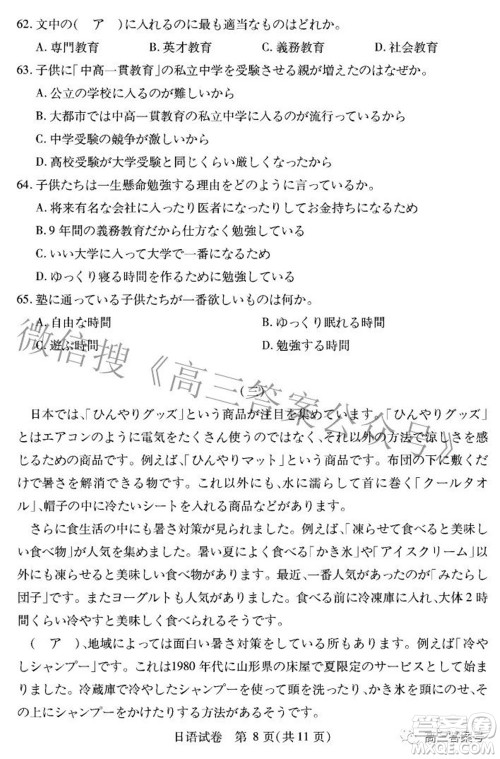 62. 文中の(　ア　)に入れるのに最も適当なものはどれか。
A. 専門教育　B. 英才教育　C. 義務教育　D. 社会教育
63. 子供に「中高一貫教育」の私立中学を受験させる親が増えたのはなぜか。
A. 公立の学校に入るのが難しいから
B. 大都市では中高一貫教育の中学に入るのが流行しているから
C. 中学受験の競争が激しいから
D. 高校受験が大学受験と同じくらい厳しいから
64. 子供たちは一生懸命勉強する理由をどのように言っているか。
A. 将来有名な会社に入ったり医者になったりしてお金持ちになるため
B. 9 年間の義務教育だから仕方なく勉強している
C. いい大学に入って大学で一番になるため
D. ゆっくり寝る時間を作るために勉強している
65. 塾に通っている子供たちが一番欲しいものは何か。
A. 自由な時間　B. ゆっくり眠れる時間
C. 遊ぶ時間　D. 勉強する時間
(三)
日本では、「ひんやりグッズ」という商品が注目を集めています。「ひんやりグッズ」
とはエアコンのように電気をたくさん使うのではなく、それ以外の方法で涼しさを得
るための商品です。例えば、「ひんやりマット」という商品です。布団の下に敷くだけ
で暑さを解消できる物です。これ以外にも、水に濡らして首に巻く「クールタオ
ル」、帽子の中に冷たいシートを入れたものなどがあります。
さらに食生活の中でも暑さ対策が見られました。例えば、「凍らせて食べると美味
しい食べ物」が人気を集めました。暑い夏によく食べる「かき氷」や「アイスクリーム」以
外にも凍らせると美味しい食べ物があります。最近、一番人気があったのが「みたらし
団子」です。またヨーグルトも人気がありました。食べる前に冷凍庫に入れ、大体 2 時
間ほどで美味しく食べられます。
(　ア　)、地域によっては面白い暑さ対策をしている所もあります。例えば「冷や
しシャンプー」です。これは1980 年代に山形県の床屋で夏限定のサービスとして始ま
りました。冷蔵庫で冷やしたシャンプーを使い、洗います。また、氷を頭にのせ、そ
の上にシャンプーをかけたりする方法があるそうです。
日语试卷　第 8 页(共 11 页)
微信搜《高三答案公众号》
高三答案号